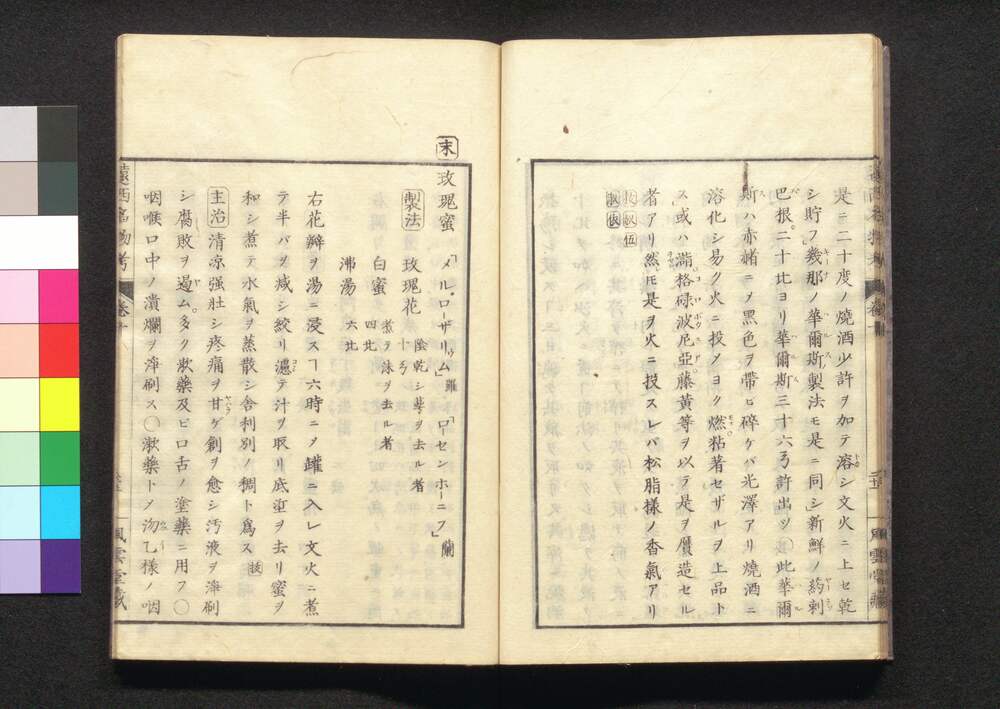 是ニ二十度ノ燒酒少許ヲ加テ溶シ文火ニ上セ乾
シ貯フ幾那ノ華爾斯ノ製法モ是ニ同シ新鮮ノ葯剌
巴根二十比ヨリ華爾斯三十六弓許出ツ〇此華爾
斯ハ赤褚ニ〆黑色ヲ帶ヒ碎ケバ光澤アリ燒酒ニ
溶化シ易ク火ニ投メヨク燃粘著セザルヲ上品ト
ス或ハ瀚格碌波尼亞藤黃等ヲ以テ是ヲ贋造セル
者アリ然𪜈是ヲ火ニ投スレバ松脂樣ノ香氣アリ
末
玫瑰蜜「メルローザリゥム」羅「ローセンホーニフ」蘭
製法 玫瑰花 陰乾シ萼ヲ去ル者 十弓
白蜜 煮テ沫ヲ去ル者 四比
沸湯 六比
右花瓣ヲ湯ニ浸スヿ六時ニ〆罐ニ入レ文火ニ煮
テ半バヲ减シ絞リ濾テ汁ヲ取リ底垽ヲ去リ蜜ヲ
和シ煮テ水氣ヲ蒸散シ舎利別ノ稠ト爲ス 扶
主治 清凉强壯シ疼痛ヲ甘ゲ創ヲ愈シ汚液ヲ淨刷
シ腐敗ヲ遏ム多ク漱藥及ビ口舌ノ塗藥ニ用フ〇
咽喉口中ノ潰爛ヲ淨刷ス〇漱藥ト〆沕乙樣ノ咽
遠西名物考 卷十
風雲堂藏